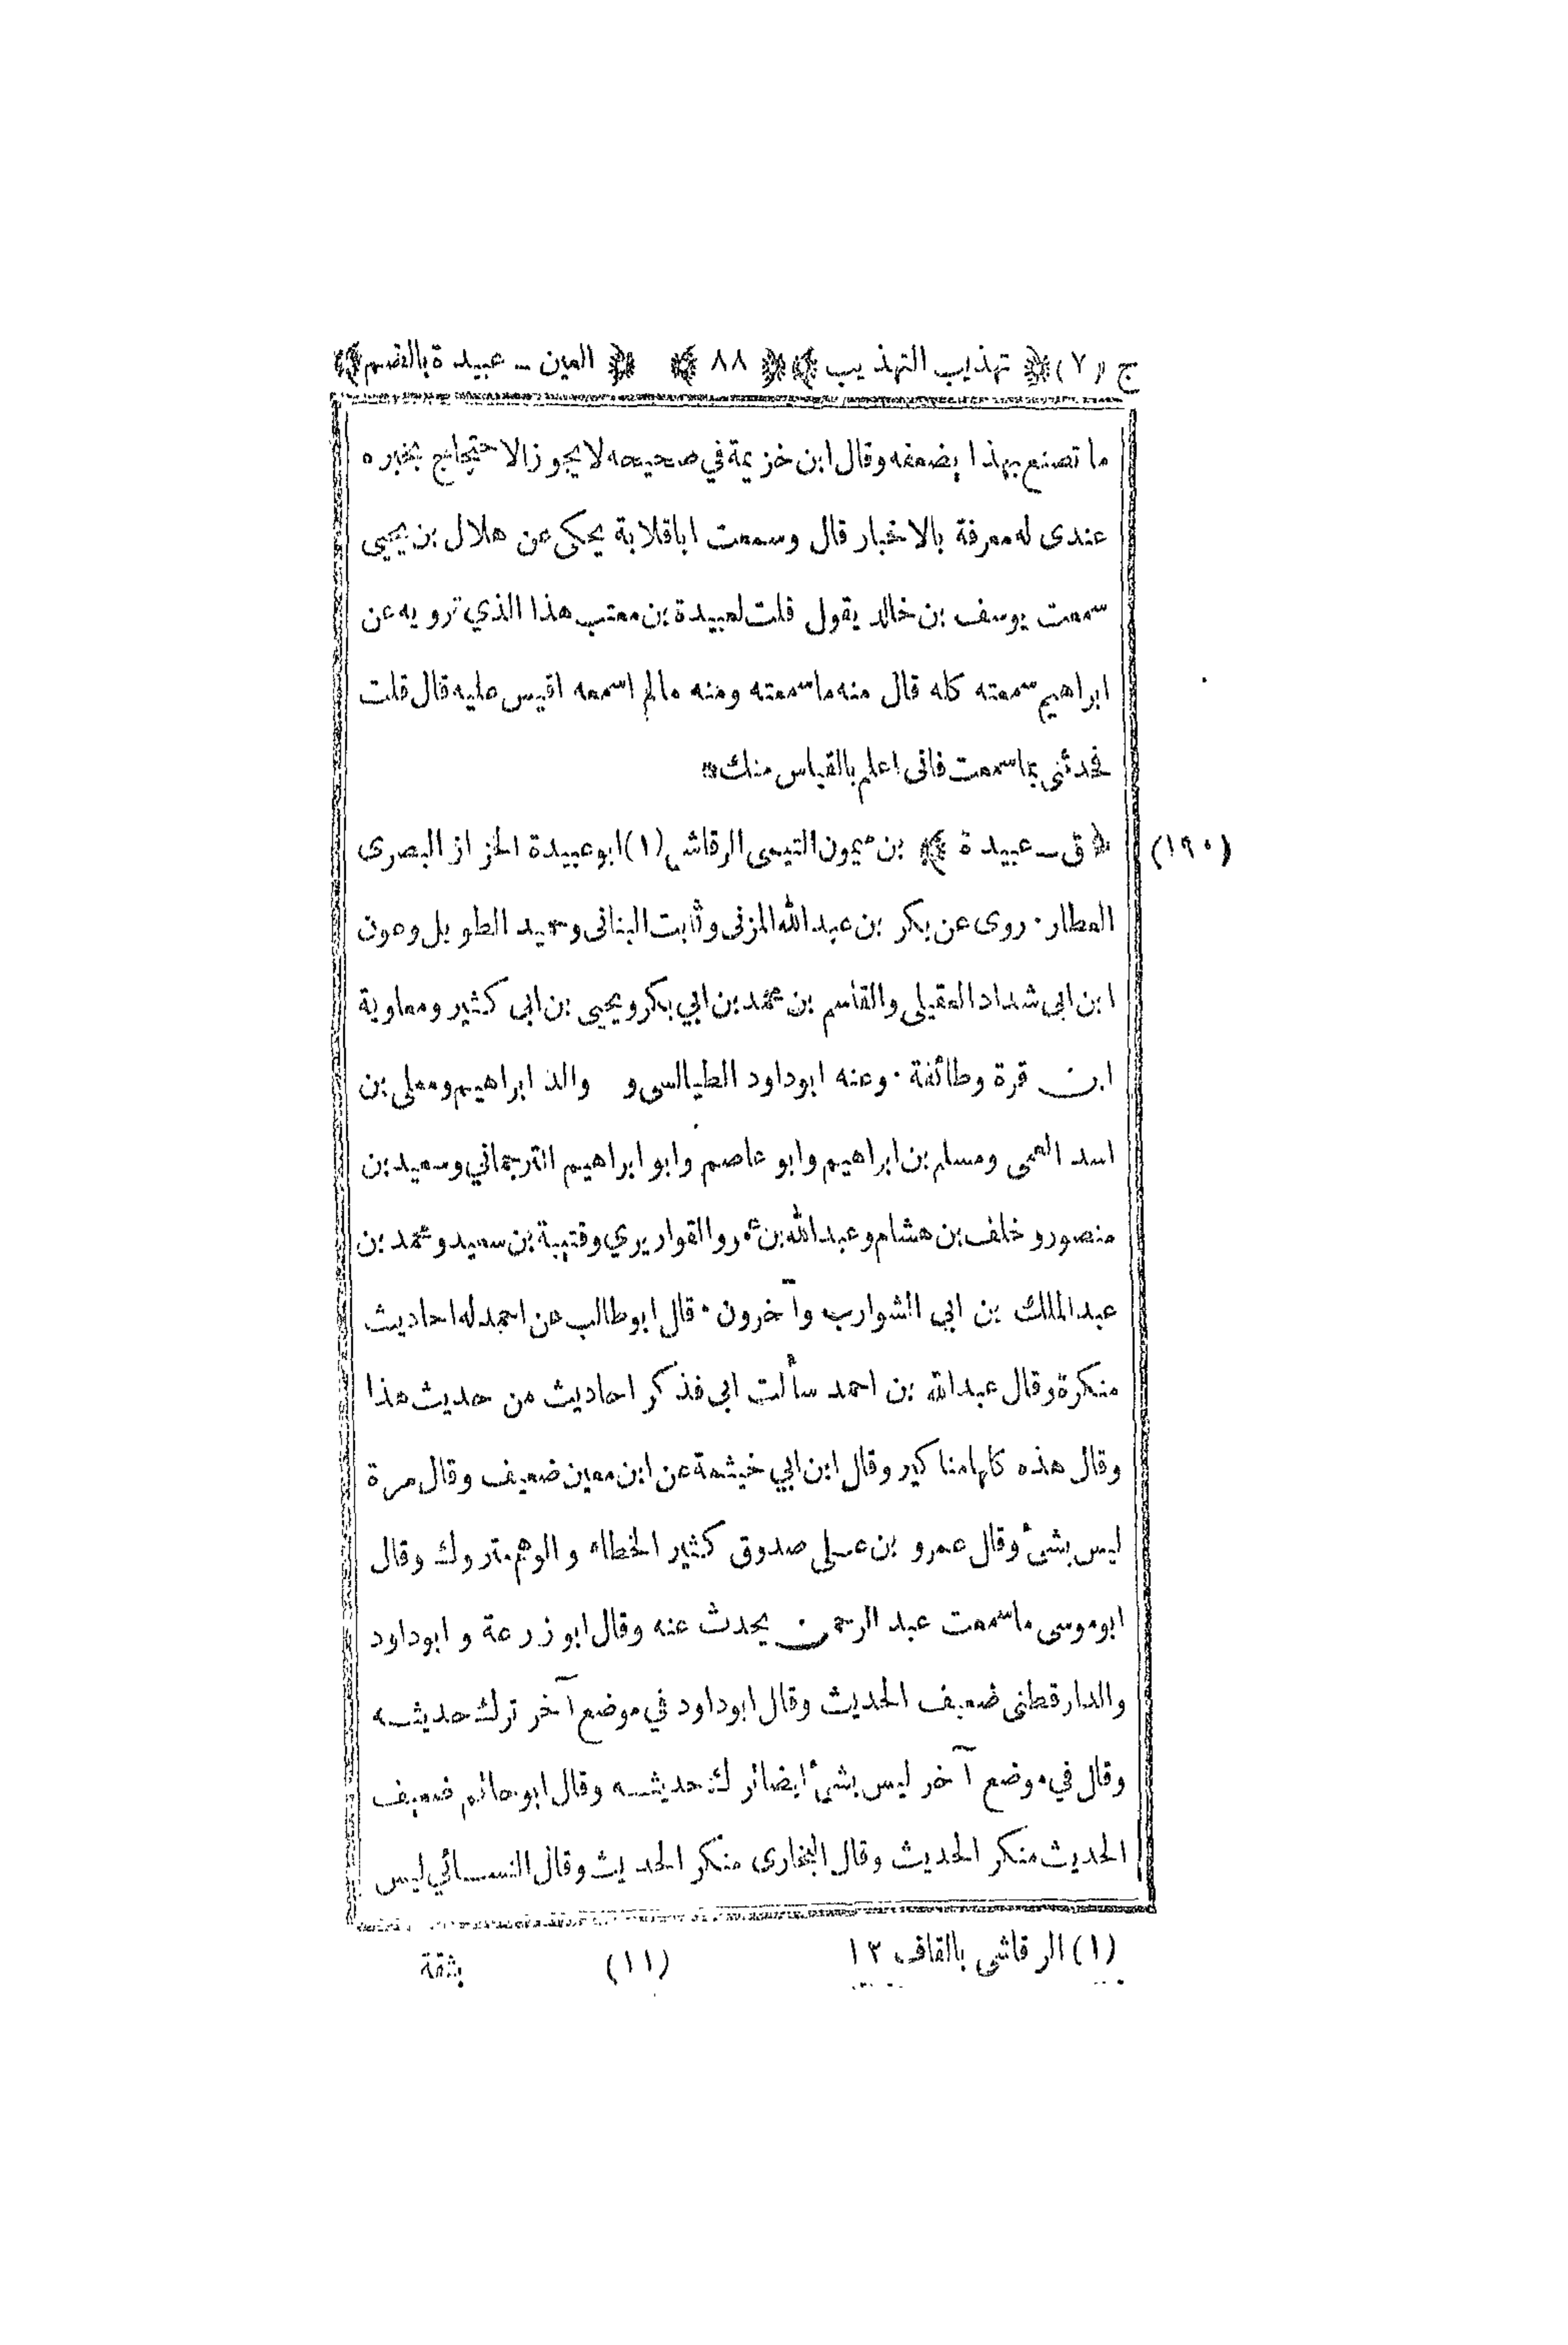 ج (٧) ﴿ تهذيب التهذيب ﴾ ﴿ ٨٨ ﴾ ﴿ العين ـ عبيدة بالضم ﴾
ما تصنع بهذا يضعفه وقال ابن خزيمة في صحيحه لا يجوز الاحتجاج بخبره
عندى له معرفة بالاخبار قال وسمعت اباقلابة يحكى عن هلال بن يحيى
سمعت يوسف بن خالد يقول قلت لعبيدة بن معتب هذا الذي ترويه عن
ابراهيم سمعته كله قال منه ما سمعته ومنه مالم اسمعه اقيس عليه قال قلت
فحدثنى بما سمعت فانى اعلم بالقياس منك *
(١٩٠) ﴿ ق ـ عبيدة ﴾ بن ميمون التيمى الرقاشى (١) ابو عبيدة الخزاز البصرى
العطار · روى عن بكر بن عبدالله المزنى وثابت البنانى وحميد الطويل وعون
ابن ابى شداد العقيلى والقاسم بن محمد بن ابي بكر ويحيى بن ابى كثير ومعاوية
ابن قرة وطائفة · وعنه ابوداود الطيالسى و والد ابراهيم ومعلى بن
اسد العمى ومسلم بن ابراهيم وابو عاصم وابو ابراهيم الترجماني وسعيد بن
منصور وخلف بن هشام وعبدالله بن عمرو القواريري وقتيبة بن سعيد ومحمد بن
عبدالملك بن ابي الشوارب وآخرون · قال ابوطالب عن احمد له احاديث
منكرة وقال عبدالله بن احمد سألت ابى فذكر احاديث من حديث هذا
وقال هذه كلها مناكير وقال ابن ابي خيثمة عن ابن معين ضعيف وقال مرة
ليس بشئ وقال عمرو بن على صدوق كثير الخطاء والوهم متروك وقال
ابوموسى ما سمعت عبد الرحمن يحدث عنه وقال ابو زرعة و ابوداود
والدارقطنى ضعيف الحديث وقال ابوداود في موضع آخر ترك حديثه
وقال في موضع آخر ليس بشئ ايضا ترك حديثه وقال ابو حاتم ضعيف
الحديث منكر الحديث وقال البخارى منكر الحديث وقال النسائي ليس
(١) الرقاشى بالقاف ١٢ (١١) بثقة